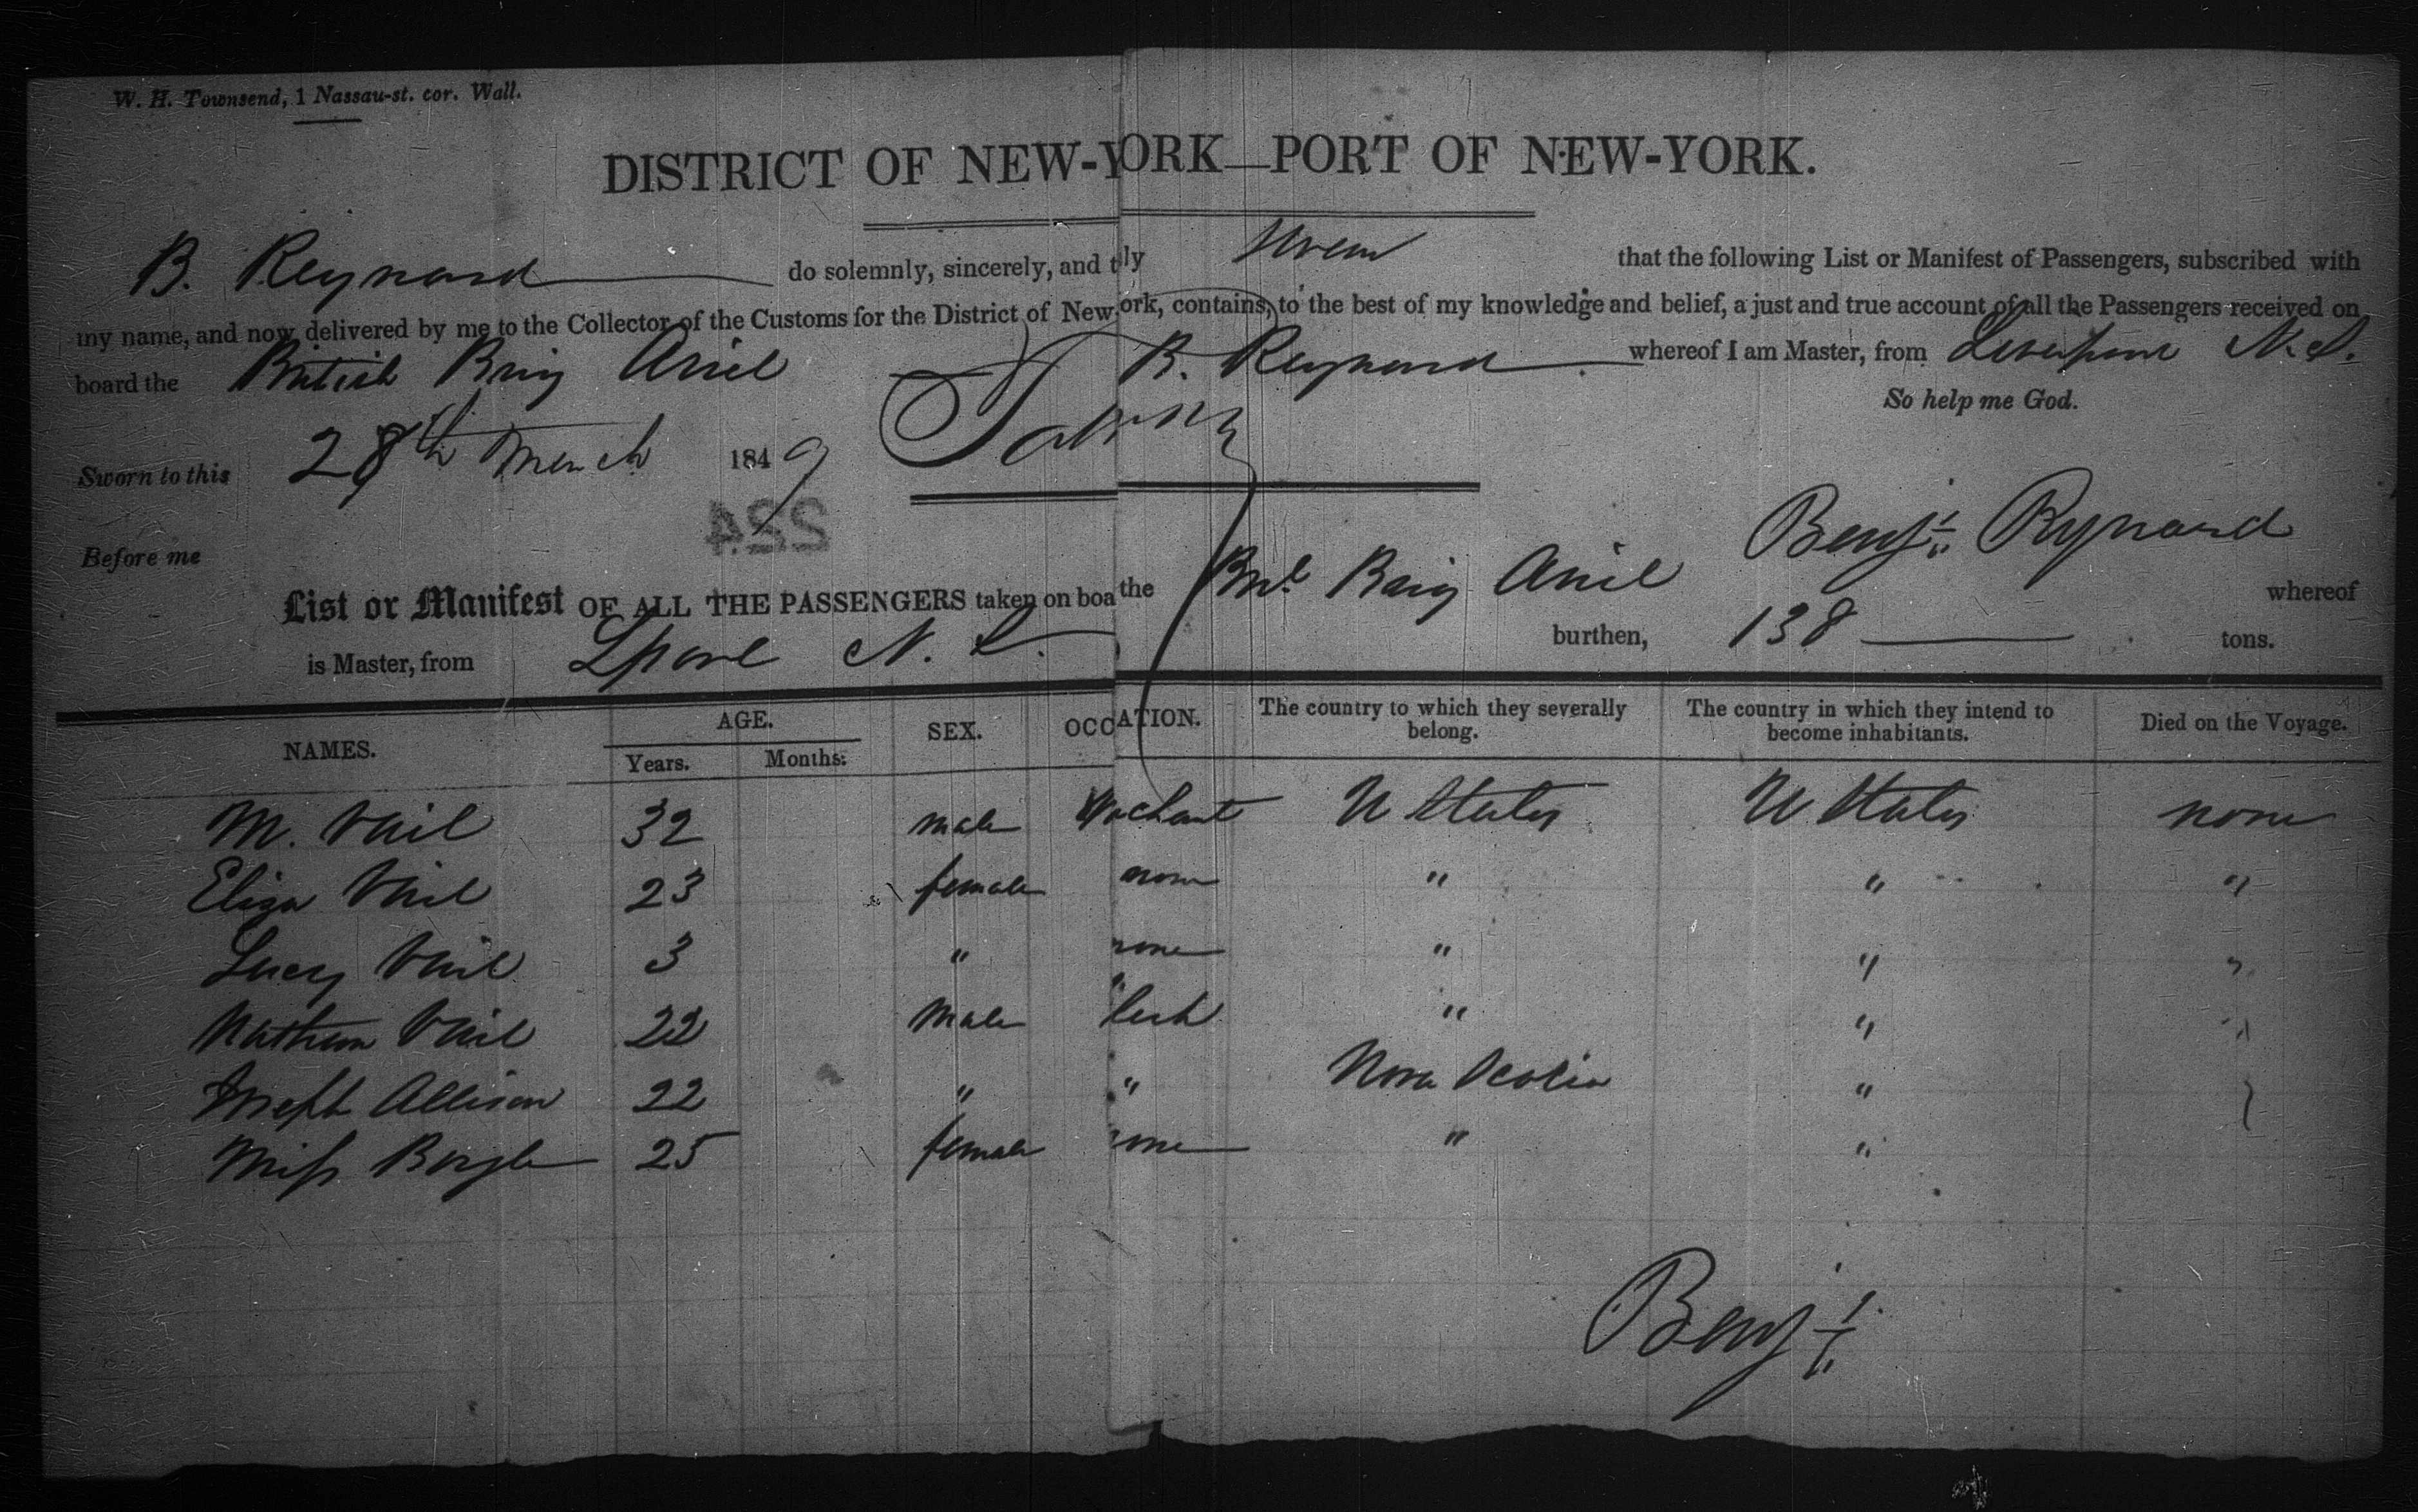 W. H. Townsend, 1 Nassau-st. cor. Wall.
DISTRICT OF NEW-YORK—PORT OF NEW-YORK.
B. Reynard do solemnly, sincerely, and t ly swear that the following List or Manifest of Passengers, subscribed with
my name, and now delivered by me to the Collector of the Customs for the District of New ork, contains, to the best of my knowledge and belief, a just and true account of all the Passengers received on
board the British Brig Ariel B. Reynard whereof I am Master, from Liverpool N.S.
So help me God.
Sworn to this 28th March 1849
224
Benjn Rynard
Before me
List or Manifest OF ALL THE PASSENGERS taken on boa the Brig Ariel whereof
is Master, from Lpool N. S. burthen, 138 tons.
NAMES. AGE. SEX. OCC ATION. The country to which they severally belong. The country in which they intend to become inhabitants. Died on the Voyage.
Years. Months.
M. Vail 32 male U States U States none
Eliza Vail 23 female none " " "
Lucy Vail 3 " none " " "
Nathan Vail 22 male " " "
Joseph Allison 22 " " Nova Scotia "
Miss 25 female none " "
Benjn